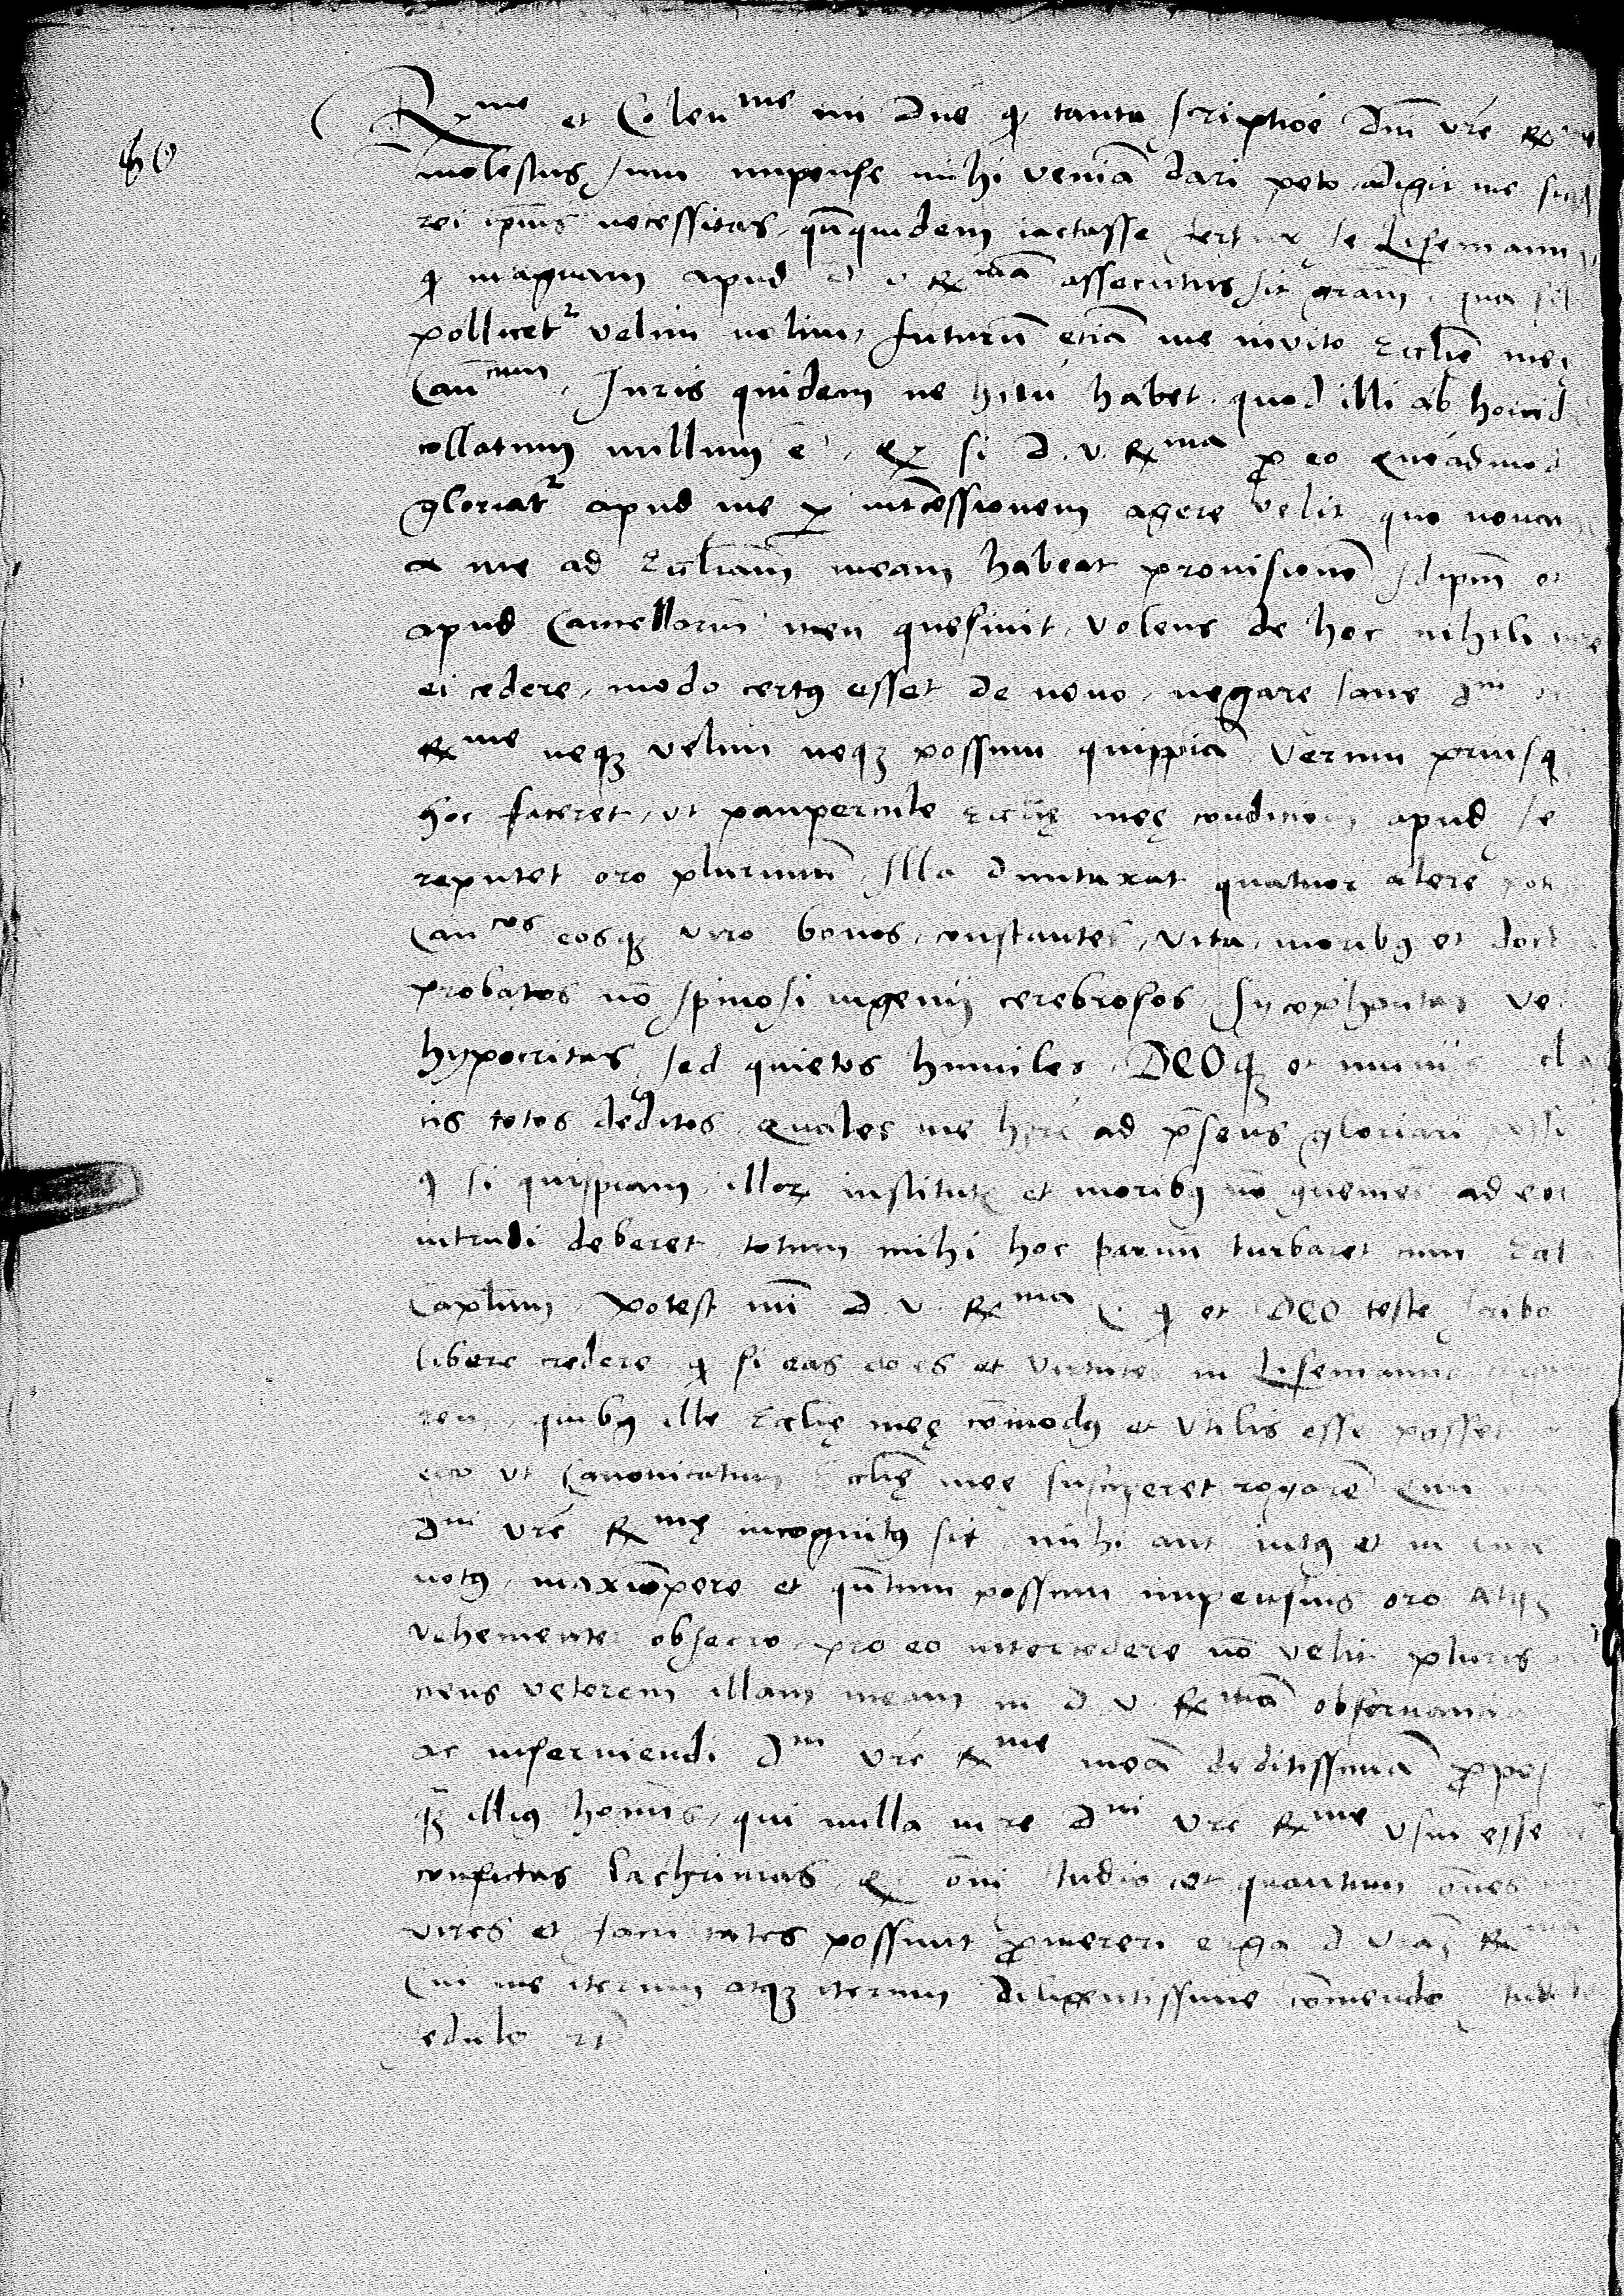 60
R.me et Colen.me mi Dne q tanta scriptioe Dni vre
molestus sum impense mihi veniā dari peto adigit me
rei ipius necessitas, qñquidem iactasse fertur se Lisemann
q magnam apud d v R.maā assecutus sit grām, qua
pollicet velim nolim, futurū etiā me invito Ecclie mee
Can.cum. Juris quidem ne hilū habet, quod illi ab homīd
collatum nullum ē, Et si d. v. R.ma pro eo quēadmod
gloriat apud me p intcessionem agere velit quo novam
a me ad Ecclīam meam habeat provisionē idipm et
apud Cancellariū meū quesivit, volens de hoc nihili
ei cedere, modo certus esset de novo, negare sane d.ni
R.me neqz velim neqz possum quippiā, verum priusq
hoc faceret, ut paupercule Ecclię meę condicionem apud se
reputet oro plurimū, Illa duntaxat quatuor alere
Can.cos eosqz viro bonos, constantes, vita, moribus et doct
probatos nō spinosi ingenij cerebrosos Sycophantas vel
hypocritas, sed quietos humiles, DEOqz et
tis totos deditos, Quales me hre ad pñsens gloriari
q si quispiam, illorum institutis et moribus nō ad eos
intrudi deberet, totum mihi hoc parum turbaret cum
Caplum, Potest mi d. v. R.ma q et DEO teste scribo
libere credere, q si eas et virtutes in Lisemanno
quibus ille Ecclię meę cōmodus et utilis esse posset
ego ut Canonicatum Ecclię meę susciperet rogarē Cum
dni vre R.mę incognitus sit, mihi aut intus et in cute
notus, maxiopere et qñtum possum impensius oro Atqz
vehementer obsecro, pro eo intercedere nō velit pluris
ciens veterem illam meam in d v. R.mā observanciam
ac inserviendi d.ni vre R.me meā deditissimā
qz illius hominis, qui nulla in re d.ni vre R.me usui esse
confictas lachrimas, Et omi studio et quantum omes
vires et facultates possunt promereri erga d vrām R
Cui me iterum atqz iterum diligentissime cōmendo
sedulo